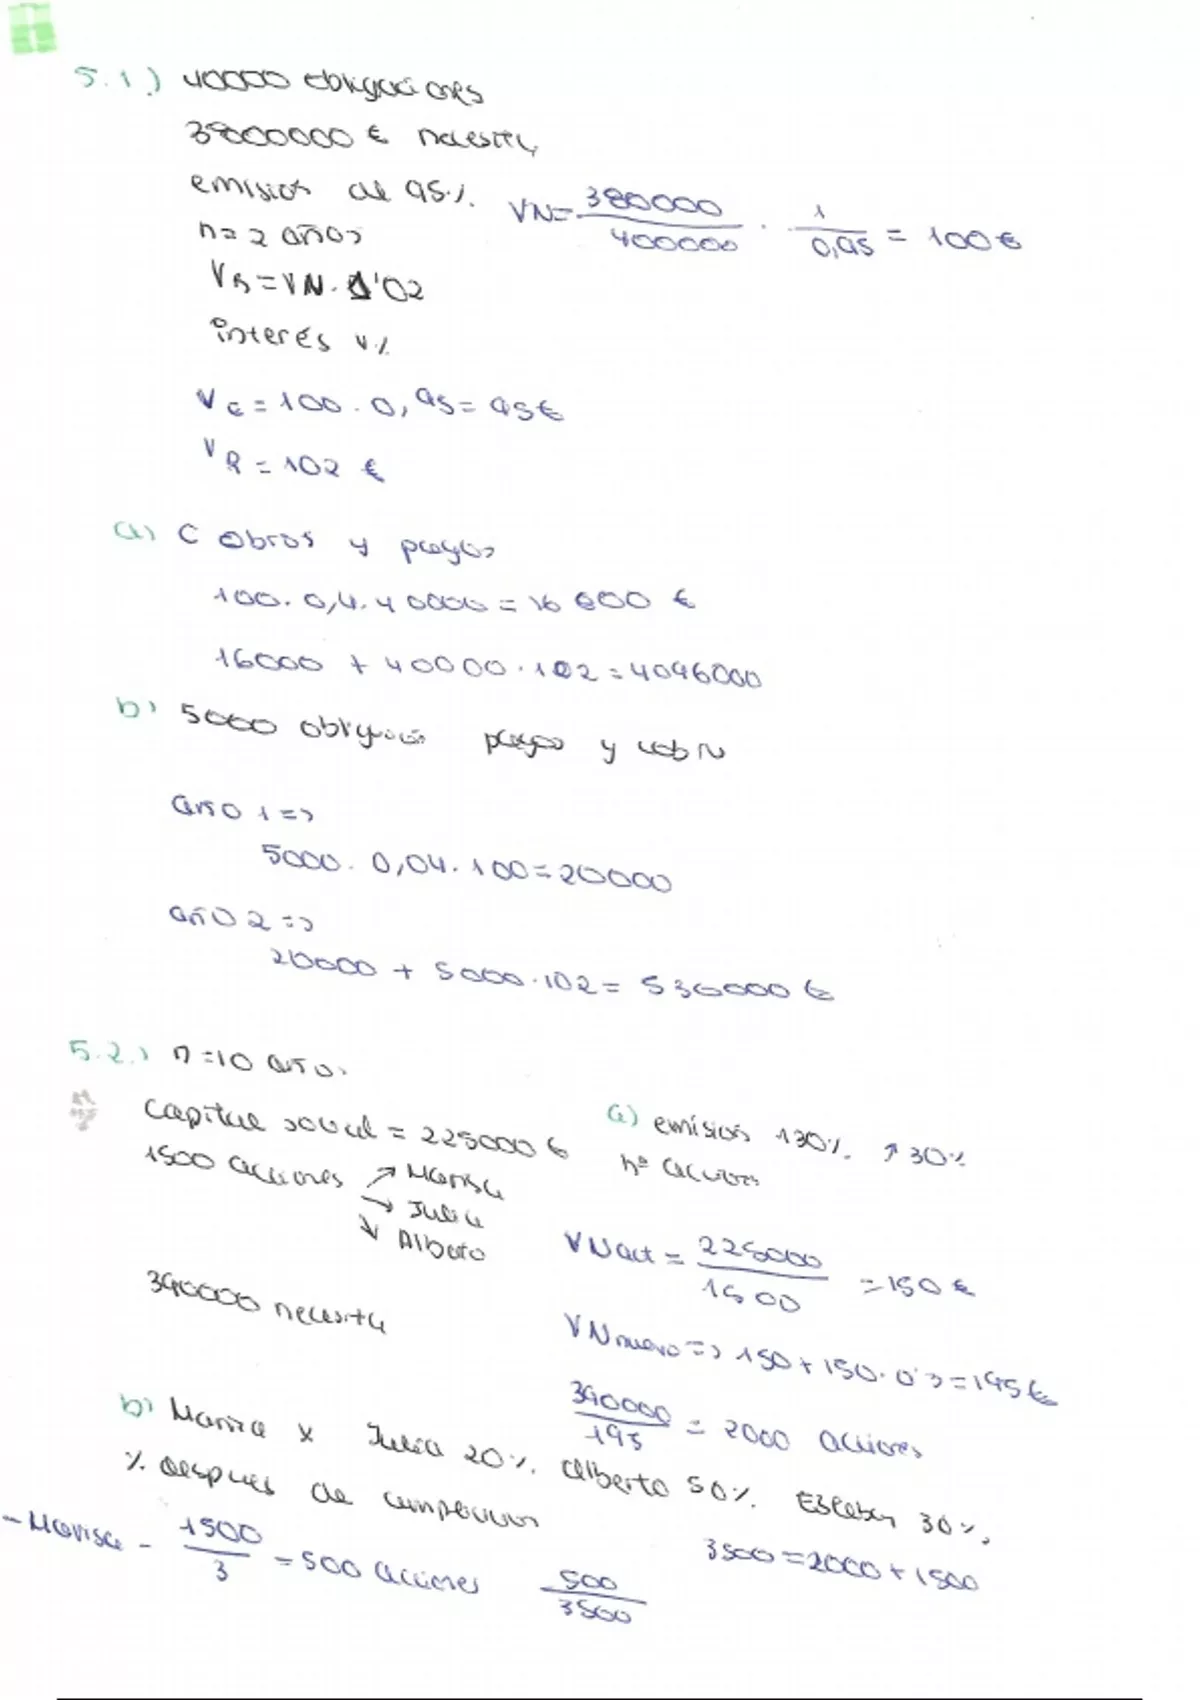 5.1.) 40000 obligaciones
38000000 € necesita
emisión de 95%.
VN= 380000 / 400000 · 1 / 0,95 = 100 €
n= 2 años
VR = VN · 1'02
interés 4%
VE = 100 · 0,95 = 95 €
VR = 102 €
a) Cobros y pagos
100 · 0,4 · 40000 = 16 000 €
16000 + 40000 · 102 = 4096000
b) 5000 pagos y cobro
año 1 =>
5000 · 0,04 · 100 = 20000
año 2 =>
20000 + 5000 · 102 = 530000 €
5.2.) n=10 año.
Capital social = 225000 €
1500 acciones ↗ Marisa
→ Julia
↘ Alberto
390000 necesita
a) emisión 130%. ↑ 30%
nº acciones
VNact = 225000 / 1500 = 150 €
VNnuevo => 150 + 150 · 0'3 = 195 €
390000 / 195 = 2000 acciones
b) Marisa x Julia 20%. Alberto 50%. Esteban 30%,
% despues de
3500 = 2000 + 1500
- Marisa - 1500 / 3 = 500 acciones 500 / 3500